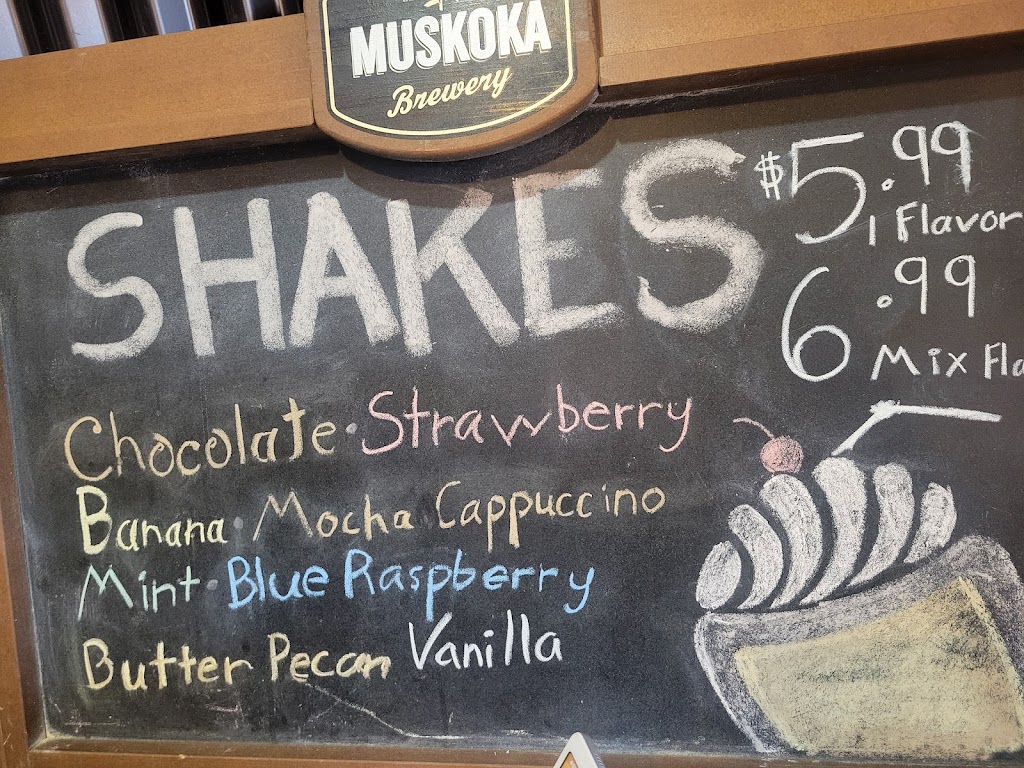 MUSKOKA
Brewery
SHAKES
$5.99
1 Flavor
6.99
Mix Fla
Chocolate · Strawberry
Banana · Mocha Cappuccino
Mint · Blue Raspberry
Butter Pecan Vanilla